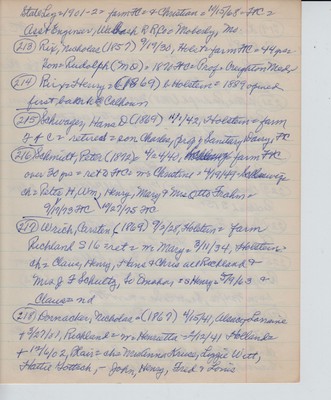 State Leg = 1901-2 = farm FC = m Christian = 4/15/68 = FC =
Asst Engineer, Wabash R R Co = Moberly, Mo.
(213) Rix, Nicholas (1857) 9/19/33, Holst = farm FC = 49 yrs =
Son = Rudolph (MD) = 1890 FC = Prof = Creighton Med.
(214) Rix, Henry = (1869) b. Holstein = 1889 opened
first bank Ft Calhoun
(215) Schwager, Hans D (1869) 4/1/42, Holstein = farm
FC = retired = son Charles, prop. Sanitary Dairy, FC
(216) Schmidt, Peter (1892) = 4/24/40, farm FC
over 30 yrs = ret to FC = m Christine = 4/19/49
ch = Peter H, Wm, Henry, Mary & Mrs Otto Frahm =
9/19/13 FC 4/27/25 FC
(217) Wrich, Carsten (1869) 9/2/28, Holstein = farm
Richland S 16 = ret = m Mary = 3/11/34, Holstein =
ch = Claus, Henry, & Chris all Richland &
Mrs J F Schultz, So Omaha, = Henry = 5/9/63 &
Claus = nd
(218) Bornacker, Nicholas = (1867) 4/15/41, Alsace, Lorraine
+ 3/27/07, Richland = m Henrietta = 2/12/41 Holland
+ 12/16/02, Blair = ch = Mesdames Lizzie Witt,
Hattie Gottsch, - John, Henry, Fred & Louis